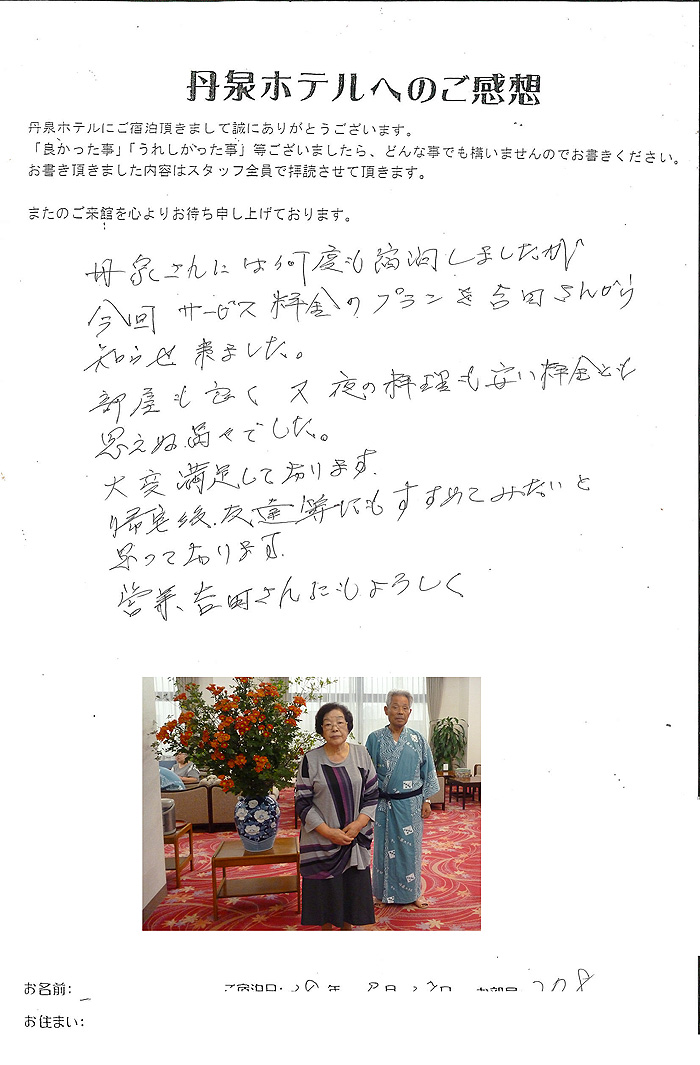 丹泉ホテルへのご感想
丹泉ホテルにご宿泊頂きまして誠にありがとうございます。
「良かった事」「うれしかった事」等ございましたら、どんな事でも構いませんのでお書きください。
お書き頂きました内容はスタッフ全員で拝読させて頂きます。
またのご来館を心よりお待ち申し上げております。
丹泉さんには何度も宿泊しましたが
今回 サービス料金のプランを吉田さんから
知らせ来ました。
部屋も 良く 又 夜の料理も安い料金とも
思えぬ品々でした。
大変満足しております.
帰宅後、友達等にもすすめてみたいと
思っております.
営業、吉田さんにもよろしく
お名前:
ご宿泊日: 年 月 日 お部屋 208
お住まい: